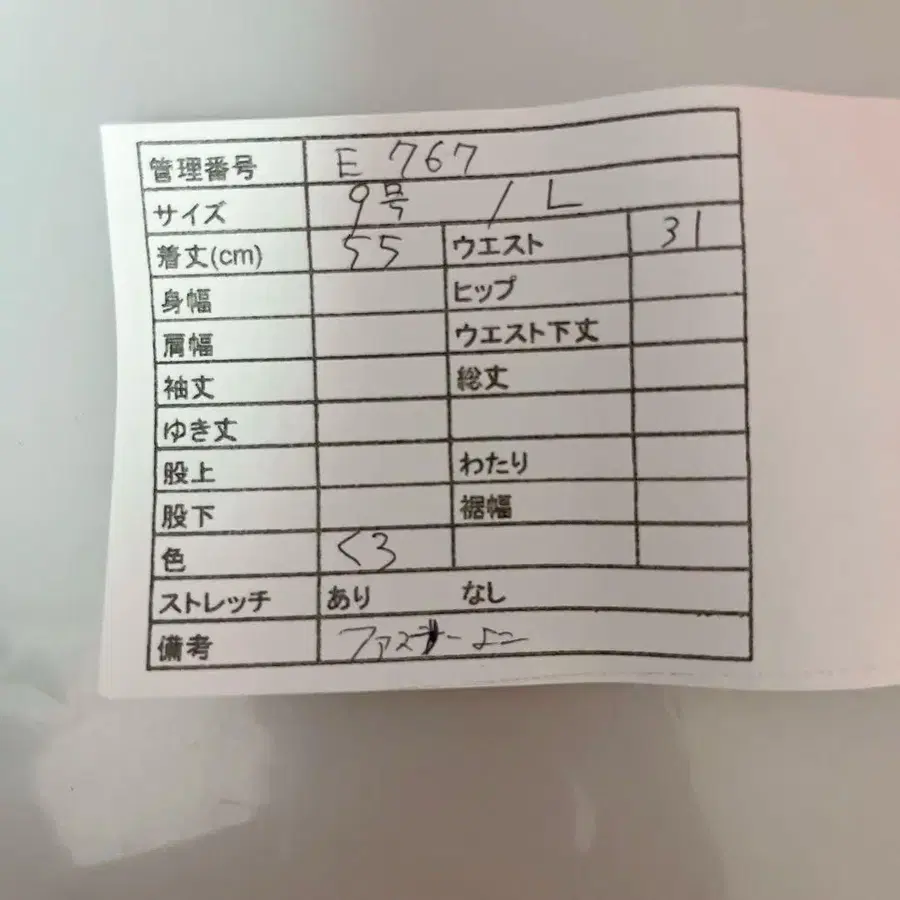 管理番号 E 767
サイズ 9号 / L
着丈(cm) 55 ウエスト 31
身幅 ヒップ
肩幅 ウエスト下丈
袖丈 総丈
ゆき丈
股上 わたり
股下 裾幅
色 くろ
ストレッチ あり なし
備考 ファスナーよこ